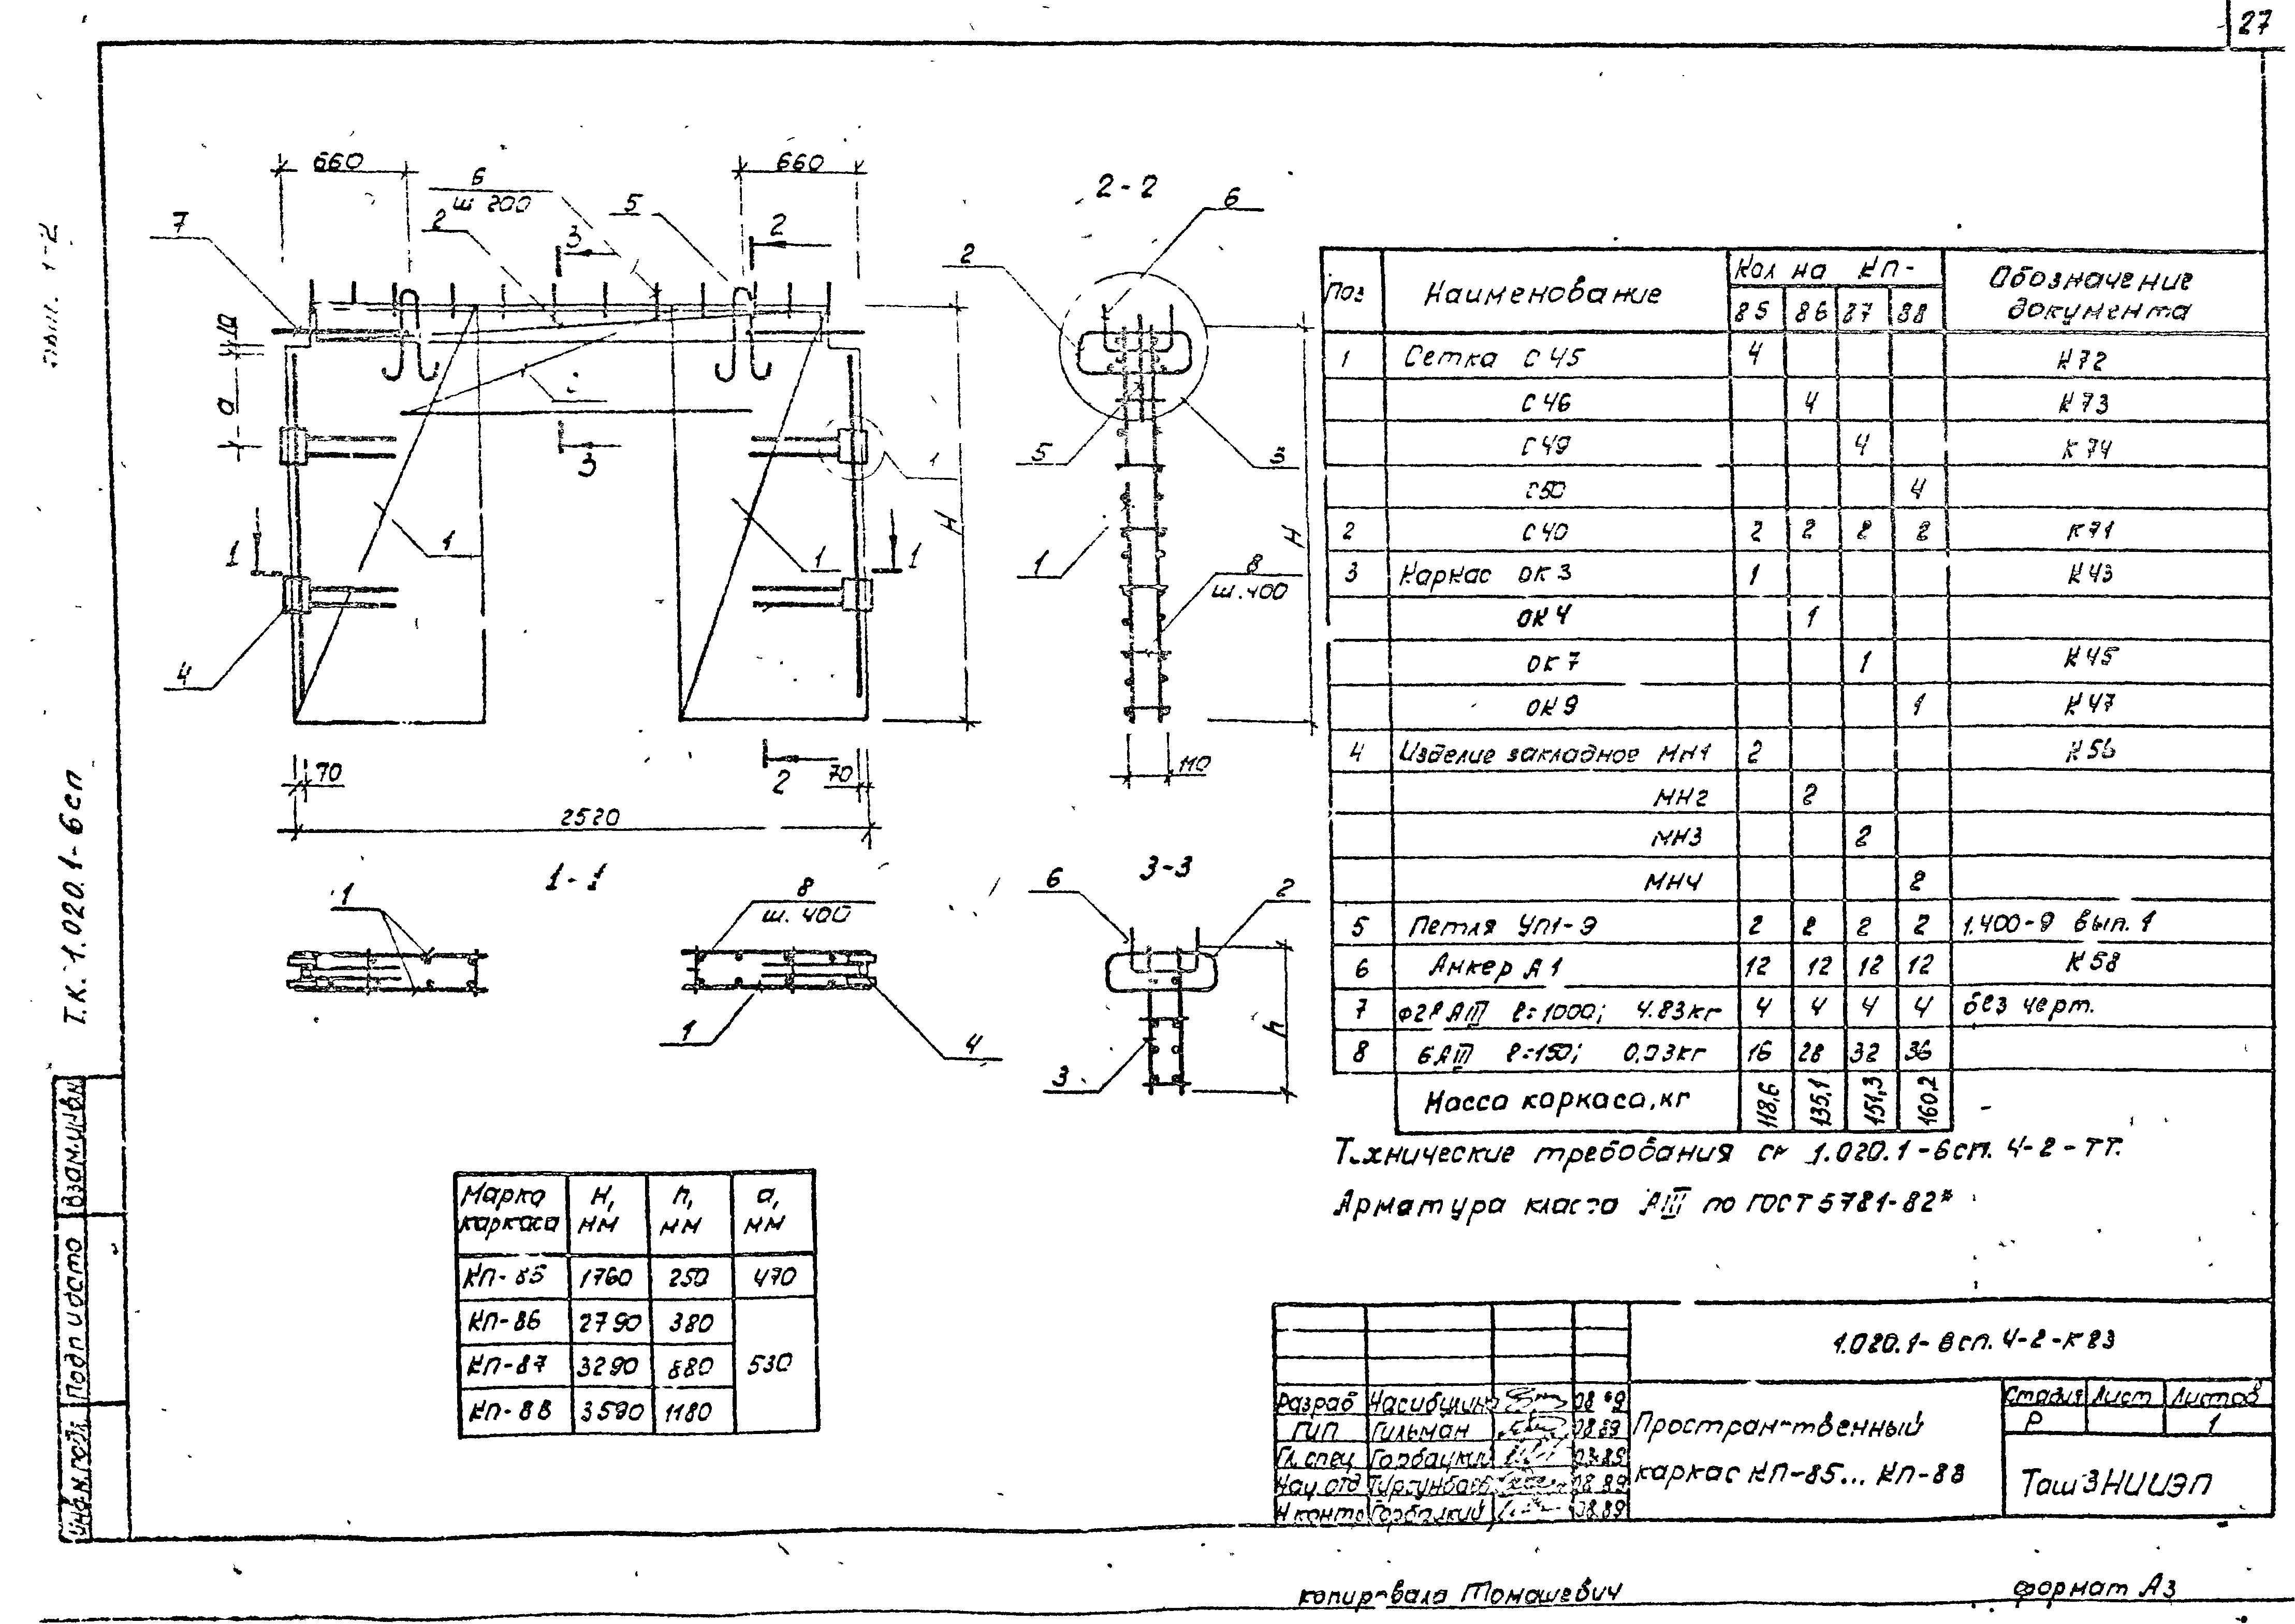 27
660
660
6
ш 200
2
5
7
3
2
10
а
3
1
1
1
1
1
4
Н
70
70
2
2520
2-2
6
2
5
3
1
8
ш. 400
Н
110
1-1
1
8
ш. 400
1
4
3-3
6
2
3
h
Поз
Наименование
Кол на КП-
Обозначение
документа
85 86 87 88
1 Сетка С 45 4 К72
С 46 4 К73
С 49 4 К 74
С50 4
2 С 40 2 2 2 2 К71
3 Каркас ОК 3 1 К43
ОК 4 1
ОК 7 1 К45
ОК 9 1 К47
4 Изделие закладное МН1 2 К56
МН2 2
МН3 2
МН4 2
5 Петля УП1-9 2 2 2 2 1.400-9 вып. 1
6 Анкер А 1 12 12 12 12 К58
7 ф28 АIII ℓ=1000; 4.83кг 4 4 4 4 без черт.
8 6АIII ℓ=150; 0,03кг 16 28 32 36
Масса каркаса, кг 118,6 135,1 151,3 160,2
Технические требования см 1.020.1-6сп. 4-2-ТТ.
Арматура класса АIII по ГОСТ 5781-82*
Марка каркаса Н, мм h, мм а, мм
КП-85 1760 250 470
КП-86 2790 380
КП-87 3290 880 530
КП-88 3590 1180
Т.К. 1.020.1-6сп
вып. 1-2
Взам.инв.N
Подп и дата
Инв.N. подл.
1.020.1-6сп. 4-2-К23
Разраб Насибулина 08 89
ГИП Гильман 08.89
Гл. спец Горбацкий 08.89
Нач. отд 08 89
Н контр Горбацкий 08.89
Пространственный
каркас КП-85... КП-88
Стадия Лист Листов
Р 1
ТашЗНИИЭП
копировала Томашевич
формат А3